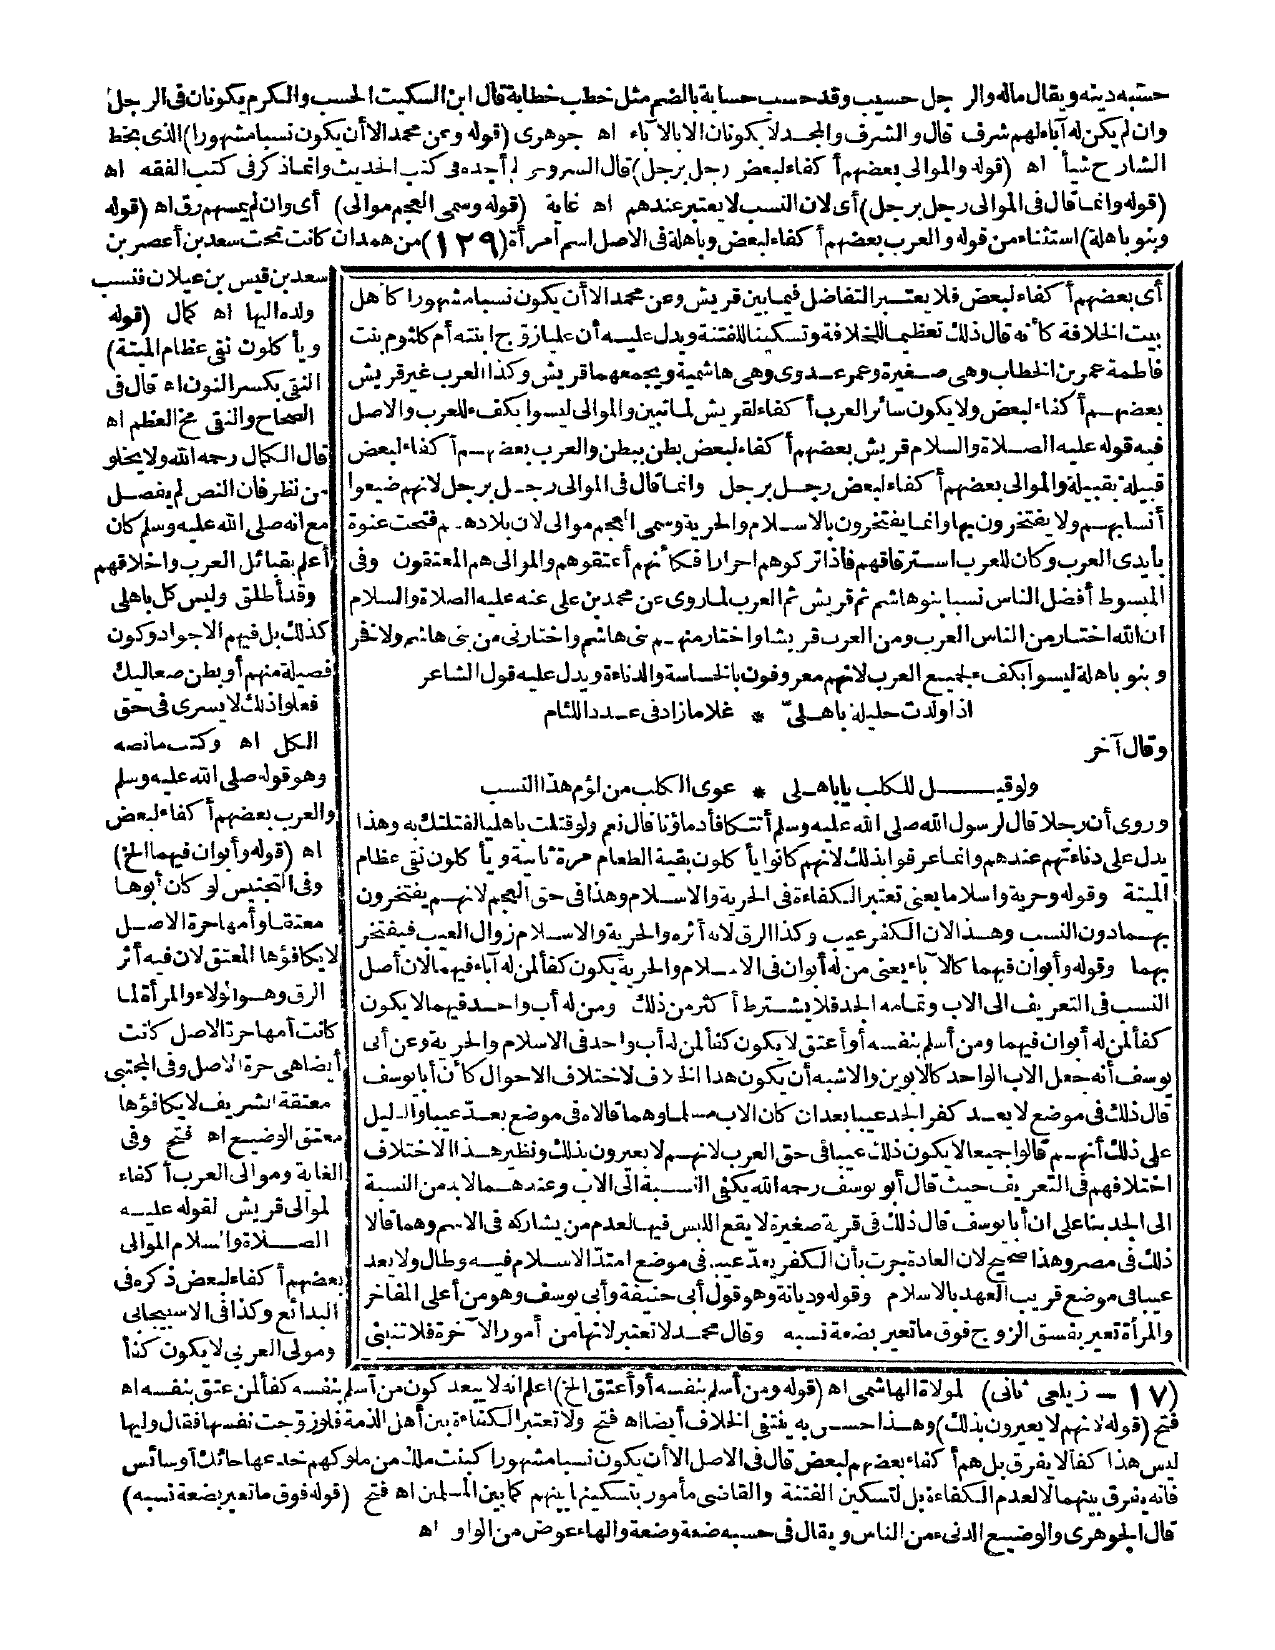 حسبه دينه ويقال ماله والرجل حسيب وقد حسب حسابة بالضم مثل خطب خطابة قال ابن السكيت الحسب والكرم يكونان فى الرجل
وان لم يكن له آباء لهم شرف قال والشرف والمجد لا يكونان الا بالآباء اه جوهرى (قوله وعن محمد الا أن يكون نسبا مشهورا) الذى بخط
الشارح شيأ اه (قوله والموالى بعضهم أكفاء لبعض رجل برجل) قال السروجى لم أجده فى كتب الحديث وانما ذكر فى كتب الفقه اه
(قوله وانما قال فى الموالى رجل برجل) أى لان النسب لا يعتبر عندهم اه غاية (قوله وسمى العجم موالى) أى وان لم يمسهم رق اه (قوله
وبنو باهلة) استثناء من قوله والعرب بعضهم أكفاء لبعض وباهلة فى الاصل اسم امرأة (١٢٩) من همدان كانت تحت سعد بن أعصر بن
سعد بن قيس بن عيلان فنسب
ولده اليها اه كمال (قوله
ويأكلون نقى عظام الميتة)
النقى بكسر النون اه قال فى
الصحاح والنقى مخ العظم اه
قال الكمال رحمه الله ولا يخلو
من نظر فان النص لم يفصل
مع انه صلى الله عليه وسلم كان
أعلم بقبائل العرب واخلاقهم
وقد أطلق وليس كل باهلى
كذلك بل فيهم الاجواد وكون
فصيلة منهم أو بطن صعاليك
فعلوا ذلك لا يسرى فى حق
الكل اه وكتب مانصه
وهو قوله صلى الله عليه وسلم
والعرب بعضهم أكفاء لبعض
اه (قوله وأبوان فيهما الخ)
وفى التجنيس لو كان أبوها
معتقا وأمها حرة الاصل
لا يكافؤها المعتق لان فيه أثر
الرق وهو الولاء والمرأة لما
كانت أمها حرة الاصل كانت
أيضا هى حرة الاصل وفى المجتبى
معتقة الشريف لا يكافؤها
معتق الوضيع اه فتح وفى
الغاية وموالى العرب أكفاء
لموالى قريش لقوله عليه
الصلاة والسلام الموالى
بعضهم أكفاء لبعض ذكره فى
البدائع وكذا فى الاسبيجابى
ومولى العربى لا يكون كفأ
أى بعضهم أكفاء لبعض فلا يعتبر التفاضل فيما بين قريش وعن محمد الا أن يكون نسبا مشهورا كأهل
بيت الخلافة كأنه قال ذلك تعظيما للخلافة وتسكينا للفتنة ويدل عليه أن عليا زوج ابنته أم كلثوم بنت
فاطمة عمر بن الخطاب وهى صغيرة وعمر عدوى وهى هاشمية ويجمعهما قريش وكذا العرب غير قريش
بعضهم أكفاء لبعض ولا يكون سائر العرب أكفاء لقريش لما تبين والموالى ليسوا بكفء للعرب والاصل
فيه قوله عليه الصلاة والسلام قريش بعضهم أكفاء لبعض بطن ببطن والعرب بعضهم أكفاء لبعض
قبيلة بقبيلة والموالى بعضهم أكفاء لبعض رجل برجل وانما قال فى الموالى رجل برجل لانهم ضيعوا
أنسابهم ولا يفتخرون بها وانما يفتخرون بالاسلام والحرية وسمى العجم موالى لان بلادهم فتحت عنوة
بأيدى العرب وكان للعرب استرقاقهم فاذا تركوهم احرارا فكأنهم أعتقوهم والموالى هم المعتقون وفى
المبسوط أفضل الناس نسبا بنو هاشم ثم قريش ثم العرب لما روى عن محمد بن على عنه عليه الصلاة والسلام
ان الله اختار من الناس العرب ومن العرب قريشا واختار منهم بنى هاشم واختارنى من بنى هاشم ولا فخر
وبنو باهلة ليسوا بكفء لجميع العرب لانهم معروفون بالخساسة والدناءة ويدل عليه قول الشاعر
اذا ولدت حليلة باهلىّ * غلاما زاد فى عدد اللئام
وقال آخر
ولو قيل للكلب يا باهلى * عوى الكلب من لؤم هذا النسب
وروى أن رجلا قال لرسول الله صلى الله عليه وسلم أتتكافأ دماؤنا قال نعم ولو قتلت باهليا لقتلتك به وهذا
يدل على دناءتهم عندهم وانما عرفوا بذلك لانهم كانوا يأكلون بقية الطعام مرة ثانية ويأكلون نقى عظام
الميتة وقوله وحرية واسلاما يعنى تعتبر الكفاءة فى الحرية والاسلام وهذا فى حق العجم لانهم يفتخرون
بهما دون النسب وهذا لان الكفر عيب وكذا الرق لانه أثره والحرية والاسلام زوال العيب فيفتخر
بهما وقوله وأبوان فيهما كالآباء يعنى من له أبوان فى الاسلام والحرية يكون كفأ لمن له آباء فيهما لان أصل
النسب فى التعريف الى الاب وتمامه الجد فلا يشترط أكثر من ذلك ومن له أب واحد فيهما لا يكون
كفأ لمن له أبوان فيهما ومن أسلم بنفسه أو أعتق لا يكون كفأ لمن له أب واحد فى الاسلام والحرية وعن أبى
يوسف أنه جعل الاب الواحد كالابوين والاشبه أن يكون هذا الخلاف لاختلاف الاحوال كأن أبا يوسف
قال ذلك فى موضع لا يعد كفر الجد عيبا بعد ان كان الاب مسلما وهما قالاه فى موضع يعدّ عيبا والدليل
على ذلك أنهم قالوا جميعا لا يكون ذلك عيبا فى حق العرب لانهم لا يعيرون بذلك ونظير هذا الاختلاف
اختلافهم فى التعريف حيث قال أبو يوسف رحمه الله يكفى النسبة الى الاب وعندهما لا بد من النسبة
الى الجد بناء على ان أبا يوسف قال ذلك فى قرية صغيرة لا يقع اللبس فيها لعدم من يشاركه فى الاسم وهما قالا
ذلك فى مصر وهذا صحيح لان العادة جرت بأن الكفر يعدّ عيبا فى موضع امتدّ الاسلام فيه وطال ولا يعد
عيبا فى موضع قريب العهد بالاسلام وقوله وديانة وهو قول أبى حنيفة وأبى يوسف وهو من أعلى المفاخر
والمرأة تعير بفسق الزوج فوق ما تعير بضعة نسبه وقال محمد لا تعتبر لانها من أمور الآخرة فلا تنبنى
(١٧ - زيلعى ثانى) لمولاة الهاشمى اه (قوله ومن أسلم بنفسه أو أعتق الخ) اعلم انه لا يبعد كون من أسلم بنفسه كفأ لمن عتق بنفسه اه
فتح (قوله لانهم لا يعيرون بذلك) وهذا حسن به ينتفى الخلاف أيضا اه فتح ولا تعتبر الكفاءة بين أهل الذمة فلو زوّجت نفسها فقال وليها
ليس هذا كفأ لا يفرق بل هم أكفاء بعضهم لبعض قال فى الاصل الا أن يكون نسبا مشهورا كبنت ملك من ملوكهم خدعها حائك أو سائس
فانه يفرق بينهما لا لعدم الكفاءة بل لتسكين الفتنة والقاضى مأمور بتسكينها بينهم كما بين المسلمين اه فتح (قوله فوق ما تعير بضعة نسبه)
قال الجوهرى والوضيع الدنىء من الناس ويقال فى حسبه ضعة وضعة والهاء عوض من الواو اه